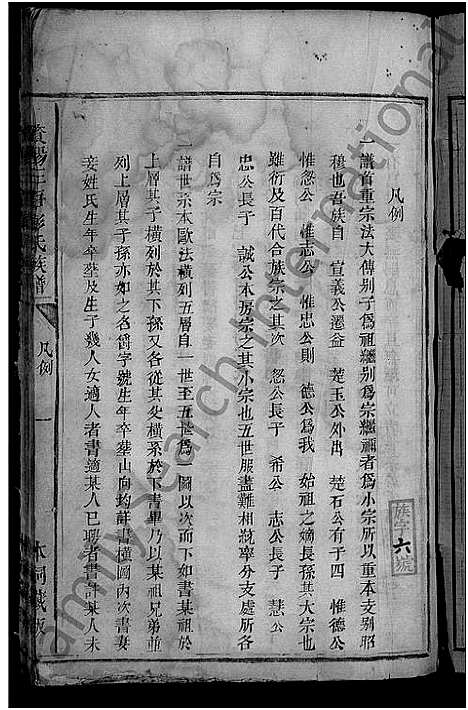 凡例
一譜首重宗法大傳别子爲祖繼别爲宗繼禰者爲小宗所以重本支别昭
穆也吾族自 宣義公遷益 楚玉公外出 楚石公有子四 惟德公
惟忽公 惟志公 惟忠公則 德公爲我 始祖之嫡長孫其大宗也
雖衍及百代合族宗之其次 忽公長子 希公 志公長子 慧公
忠公長子 誠公本房宗之其小宗也五世服盡難相統率分支處所各
自爲宗
一譜世示本歐法橫列五層自一世至五世爲一圖以次而下如書某祖於
上層其子橫列於其下孫又各從其父橫系於下書畢乃以某祖兄弟並
列上層其子孫亦如之名簡字號生年卒塟山向均註書欄圖內次書妻
妾姓氏生年卒塟及生子幾人女適人者書適某人已聘者書許某人未
益陽 彭氏族譜
凡例
一
本祠藏版
族字六號
Family Search International